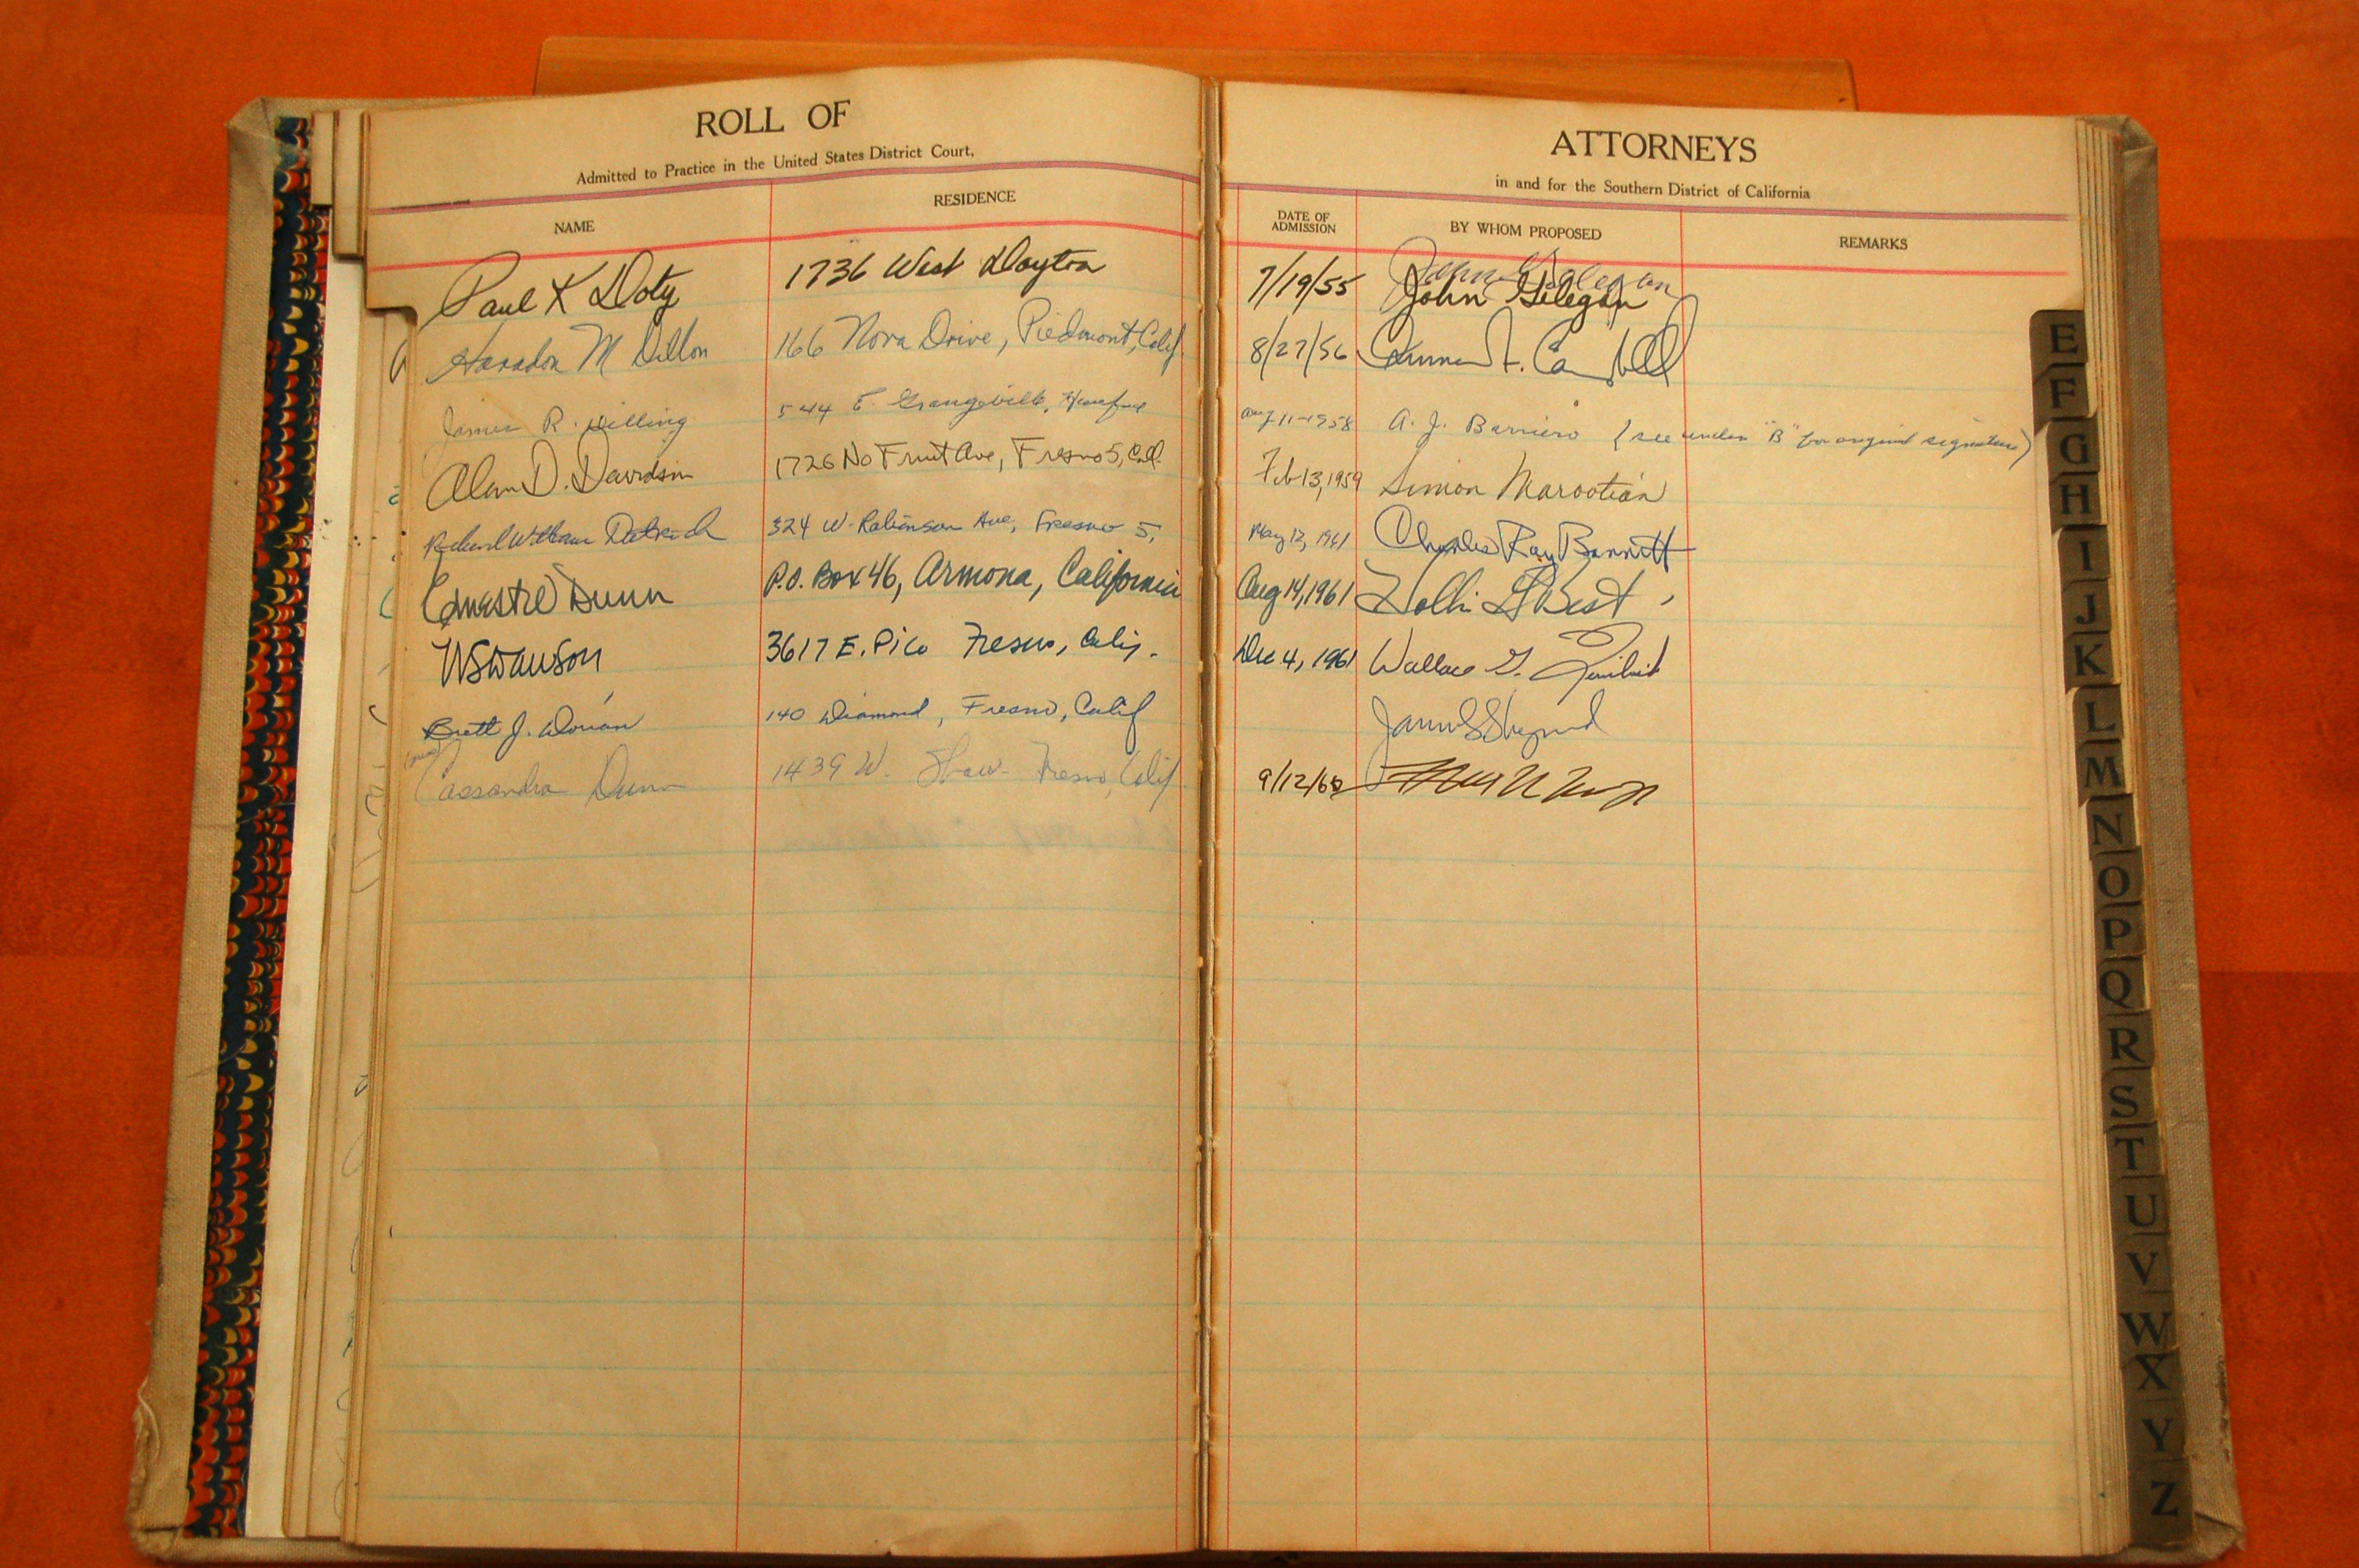 ROLL OF
Admitted to Practice in the United States District Court,
NAME RESIDENCE
Paul K Doty 1736 West Dayton
M Dillon 166 Nova Drive, Piedmont, Calif
James R. Dilling 544 E. Grangeville, Hanford
Alan D. Davidson 1726 No Fruit Ave, Fresno 5, Cal.
Richard William 324 W. Robinson Ave, Fresno 5,
Dunn P.O. Box 46, Armona, California
3617 E. Pico Fresno, Calif.
Brett J. Dorian 140 Diamond, Fresno, Calif
Cassandra Dunn 1439 W. Shaw - Fresno, Calif
ATTORNEYS
in and for the Southern District of California
DATE OF ADMISSION BY WHOM PROPOSED REMARKS
7/19/55 John Gilegan
8/27/56
Aug 11-1958 A. J. Barriero (see under "B" for original signature)
Feb 13, 1959 Simon Marootian
May 12, 1961 Charles Ray Barrett
Aug 14, 1961 Hollis G Best
Dec 4, 1961 Wallace
9/12/62
E
F
G
H
I
J
K
L
M
N
O
P
Q
R
S
T
U
V
W
X
Y
Z